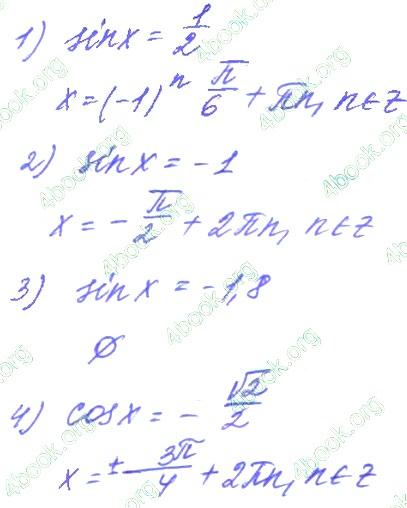 1) sinx = 1/2
x = (-1)^n π/6 + πn, n∈Z
2) sinx = -1
x = - π/2 + 2πn, n∈Z
3) sinx = -1,8
∅
4) cosx = - √2/2
x = ± 3π/4 + 2πn, n∈Z
4book.org